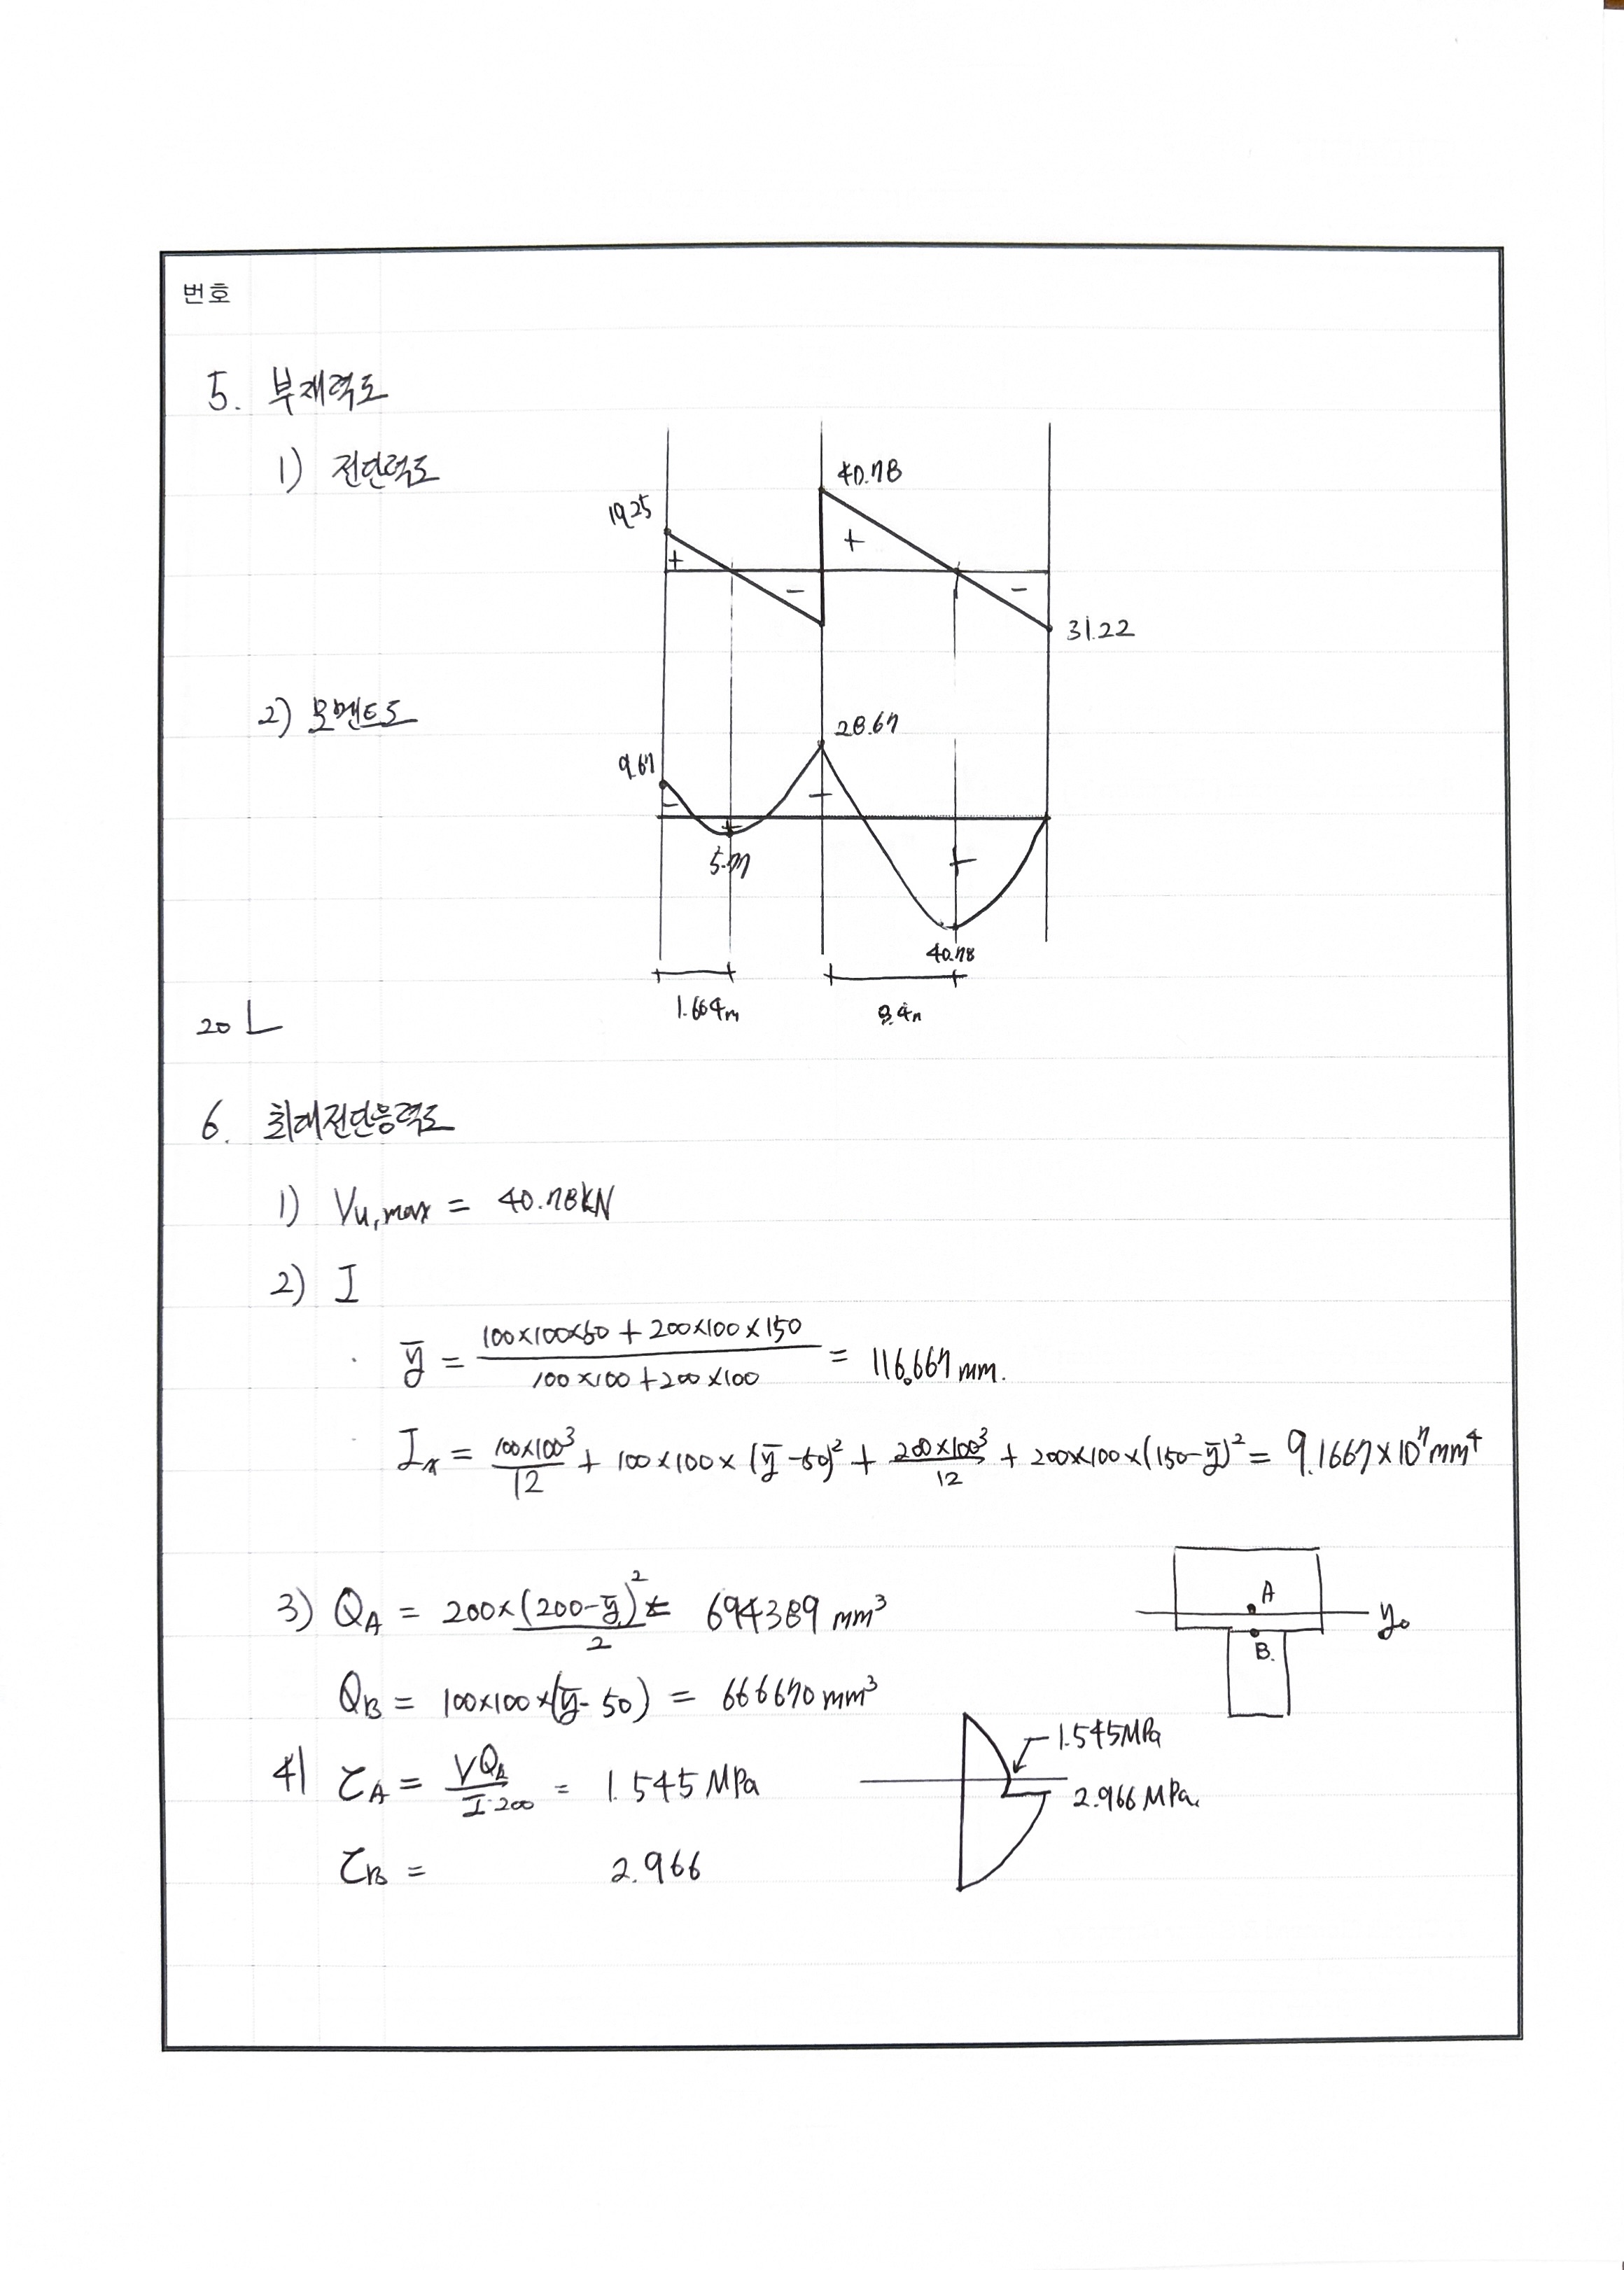 번호
5. 부재력도
1) 전단력도
40.78
19.25
+
+
-
-
31.22
2) 모멘트도
28.67
9.67
-
-
+
+
5.77
40.78
1.664m
20 L
6. 최대전단응력도
1) Vu,max = 40.78kN
2) I
· ȳ = (100×100×50 + 200×100×150) / (100×100+200×100) = 116.667 mm.
· Ix = 100×100³/12 + 100×100×(ȳ-50)² + 200×100³/12 + 200×100×(150-ȳ)² = 9.1667×10⁷mm⁴
3) QA = 200×(200-ȳ)²/2 = 694389 mm³
A
y₀
B.
QB = 100×100×(ȳ-50) = 666670 mm³
1.545MPa
4) τA = VQA/I·200 = 1.545 MPa
2.966 MPa.
τB = 2.966